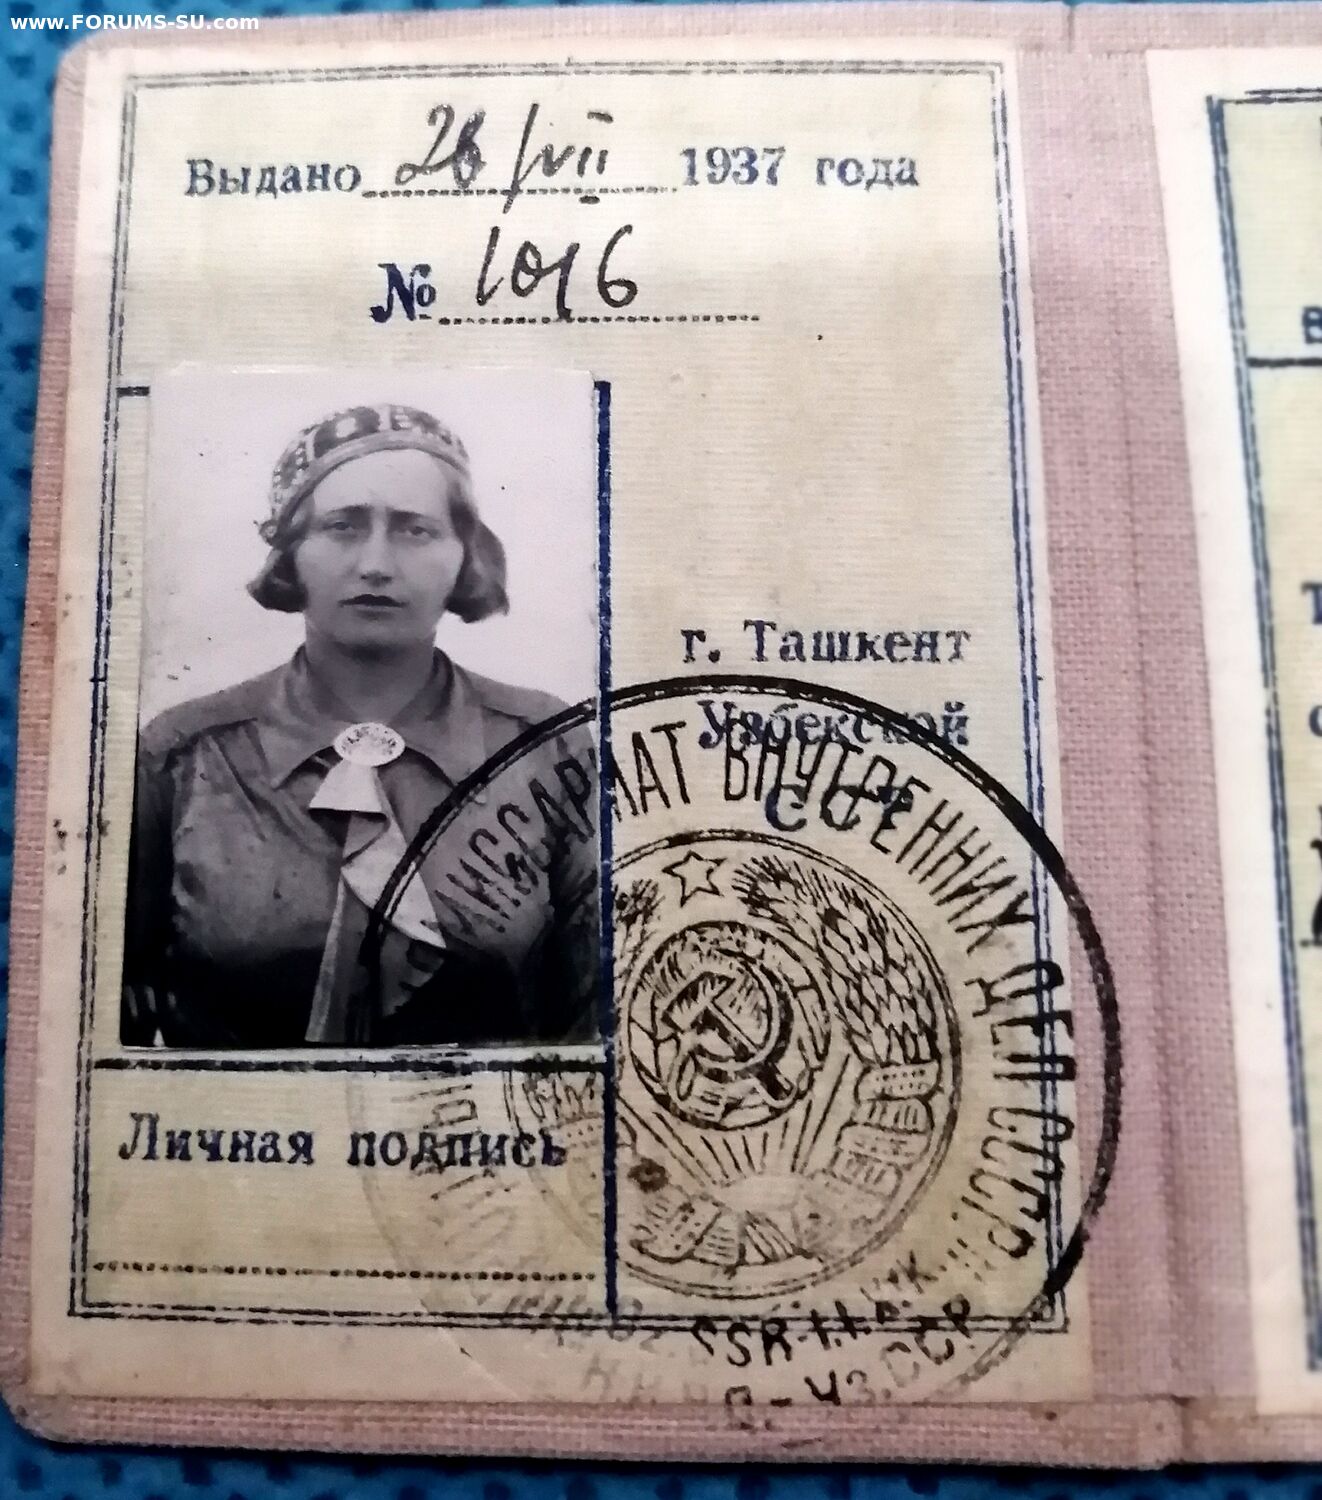 www.FORUMS-SU.com
Выдано 26/VII 1937 года
№ 1016
г. Ташкент
Узбекской
ССР
КОМИССАРИАТ ВНУТРЕННИХ ДЕЛ СССР
Личная подпись
SSR
УЗ.ССР